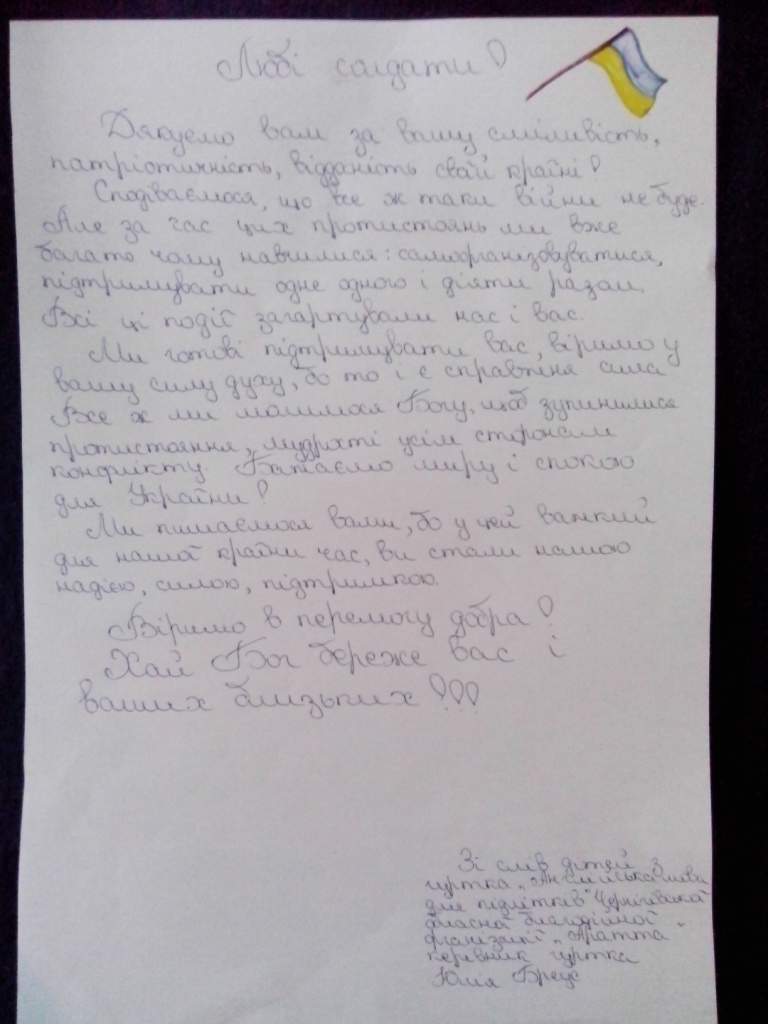 Любі солдати!
Дякуємо вам за вашу сміливість,
патріотичність, відданість своїй країні!
Сподіваємося, що все ж таки війни не буде.
Але за час цих протистоянь ми вже
багато чому навчилися: самоорганізовуватися,
підтримувати одне одного і діяти разом.
Всі ці події загартували нас і вас.
Ми готові підтримувати вас, віримо у
вашу силу духу, бо то і є справжня сила
Все ж ми молимося Богу, щоб зупинилися
протистояння, мудрості усім сторонам
конфлікту. Бажаємо миру і спокою
для України!
Ми пишаємося вами, бо у цей важкий
для нашої країни час, ви стали нашою
надією, силою, підтримкою.
Віримо в перемогу добра!
Хай Бог береже вас і
ваших близьких!!!
Зі слів дітей з
гуртка „Англійська мова
для підлітків" Чернігівської
обласної благодійної
організації „Аратта"
керівник гуртка
Юлія